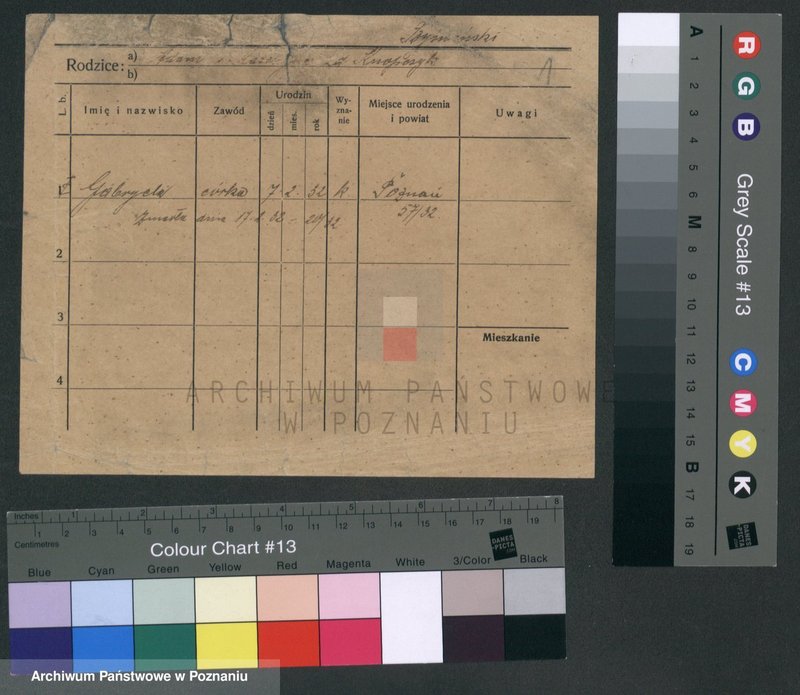 Rodzice: a) Adam
b)
L. b.
Imię i nazwisko
Zawód
Urodzin
dzień
mies.
rok
Wy-
zna-
nie
Miejsce urodzenia
i powiat
Uwagi
1 Gabryela córka 7 2 32 k Poznań
Zmarła dnia 17 2 32 57/32
2
3
Mieszkanie
4
ARCHIWUM PAŃSTWOWE
W POZNANIU
A 1 2 3 4 5 6 M 8 9 10 11 12 13 14 15 B 17 18 19
R G B
Grey Scale #13
C M Y K
DANES
-PICTA
.COM
Inches 1 2 3 4 5 6 7 8
1 2 3 4 5 6 7 8 9 10 11 12 13 14 15 16 17 18 19
Centimetres
Colour Chart #13
DANES
-PICTA
.COM
Blue Cyan Green Yellow Red Magenta White 3/Color Black
Archiwum Państwowe w Poznaniu